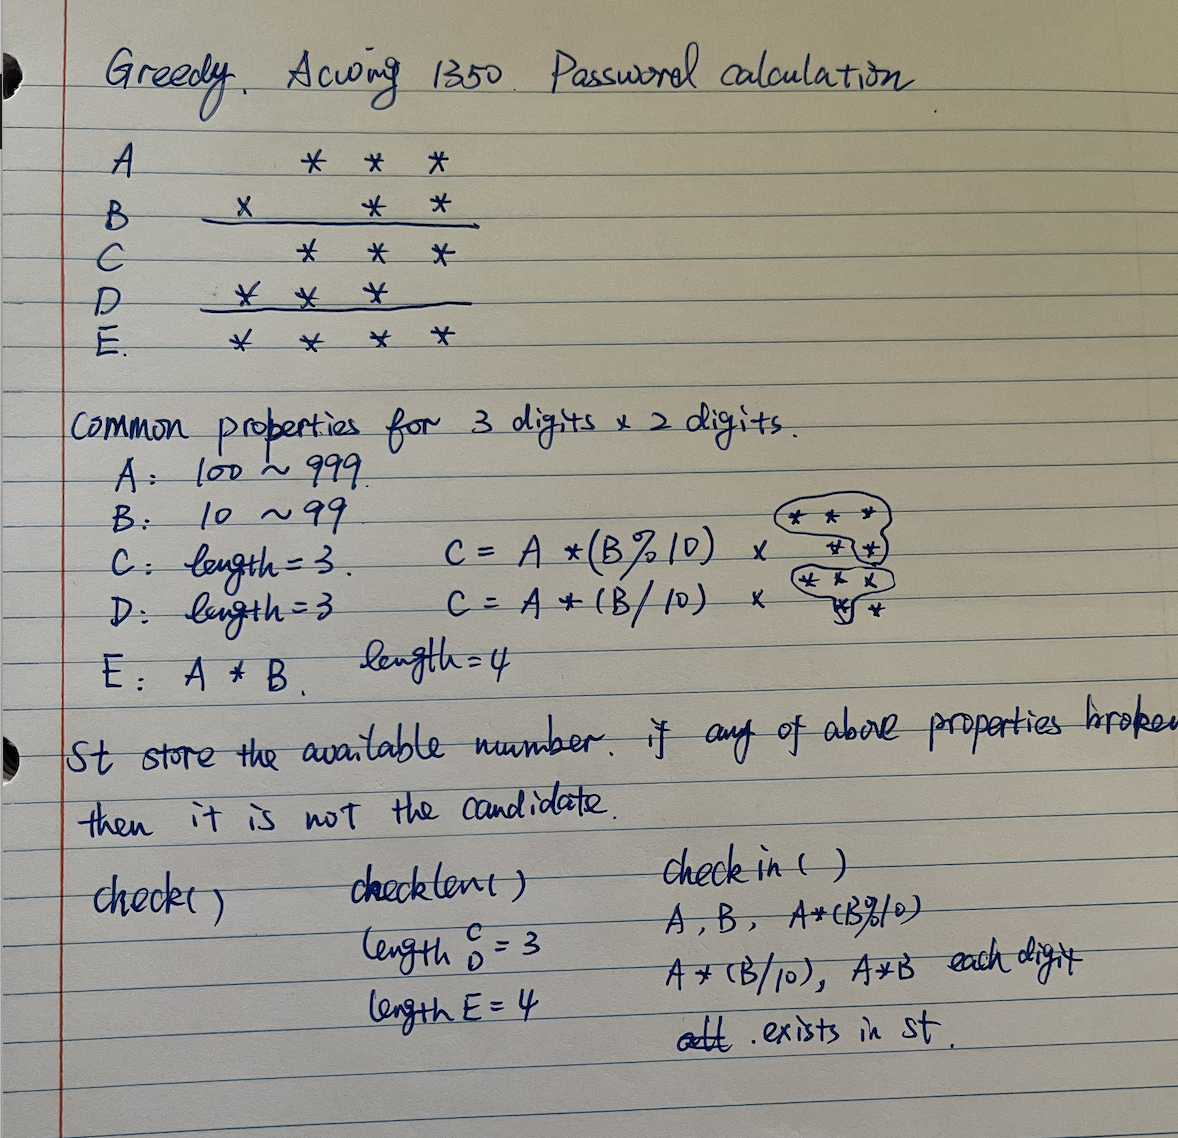 Greedy. Acwing 1350. Password calculation
A * * *
B x * *
C * * *
D * * *
E. * * * *
Common properties for 3 digits x 2 digits.
A: 100 ~ 999.
B: 10 ~ 99
C: length = 3. C = A * (B % 10) x * * *
* *
D: length = 3 C = A * (B / 10) x * * *
* *
E: A * B. length = 4
St store the available number. if any of above properties broken
then it is not the candidate.
check() checklen() check in ()
length C D = 3 A, B, A*(B%10)
length E = 4 A * (B/10), A*B each digit
all . exists in st.